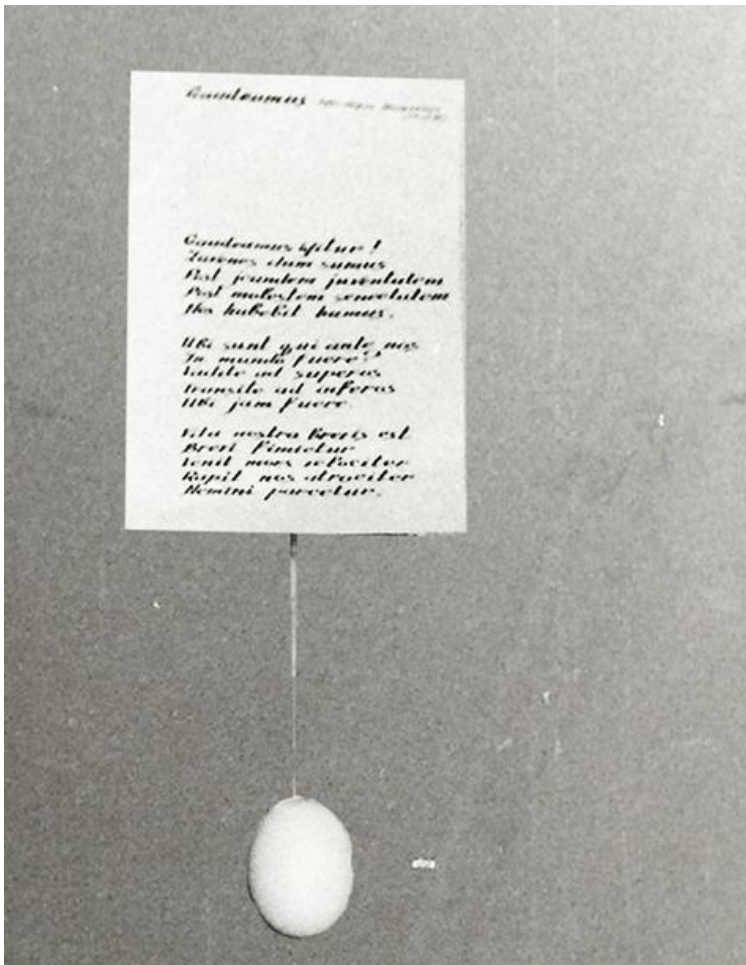 Gaudeamus
Gaudeamus igitur!
Juvenes dum sumus
Post jucundam juventutem
Post molestam senectutem
Nos habebit humus.
Ubi sunt qui ante nos
In mundo fuere?
Vadite ad superos
Transite ad inferos
Ubi jam fuere.
Vita nostra brevis est
Brevi finietur
Venit mors velociter
Rapit nos atrociter
Nemini parcetur.